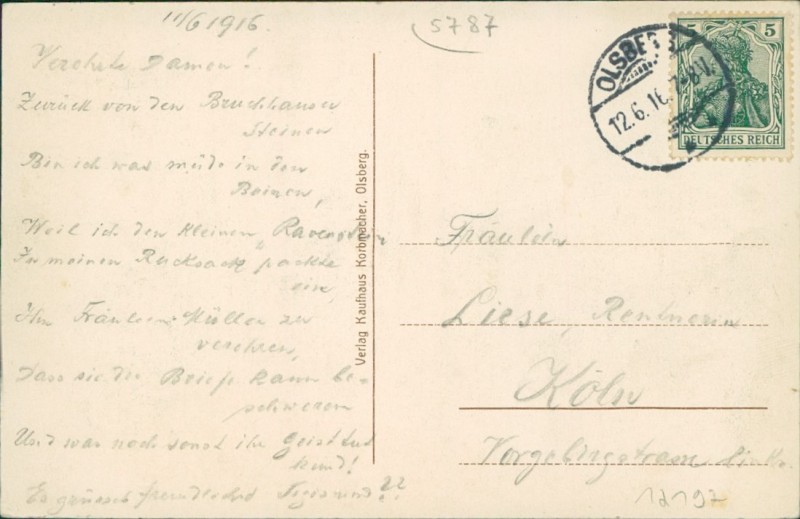 11/6 1916.
5787
Verehrte Damen!
Zurück von den Bruchhauser
Steinen
Bin ich was müde in den
Beinen,
Weil ich den kleinen
In meinen Rucksack packte
ein,
Ihn Fräulein Müller zu
verehren,
Dass sie die Briefe kann be-
schweren
Und was noch sonst ihr Geist tut
kund!
Es grüsst freundlichst Sigismund??
Verlag Kaufhaus Korbmacher, Olsberg.
OLSBERG
12.6.16.
5 5
DEUTSCHES REICH
Fräulein
Liese, Rentnerin
Köln
Vorgebirgstrasse